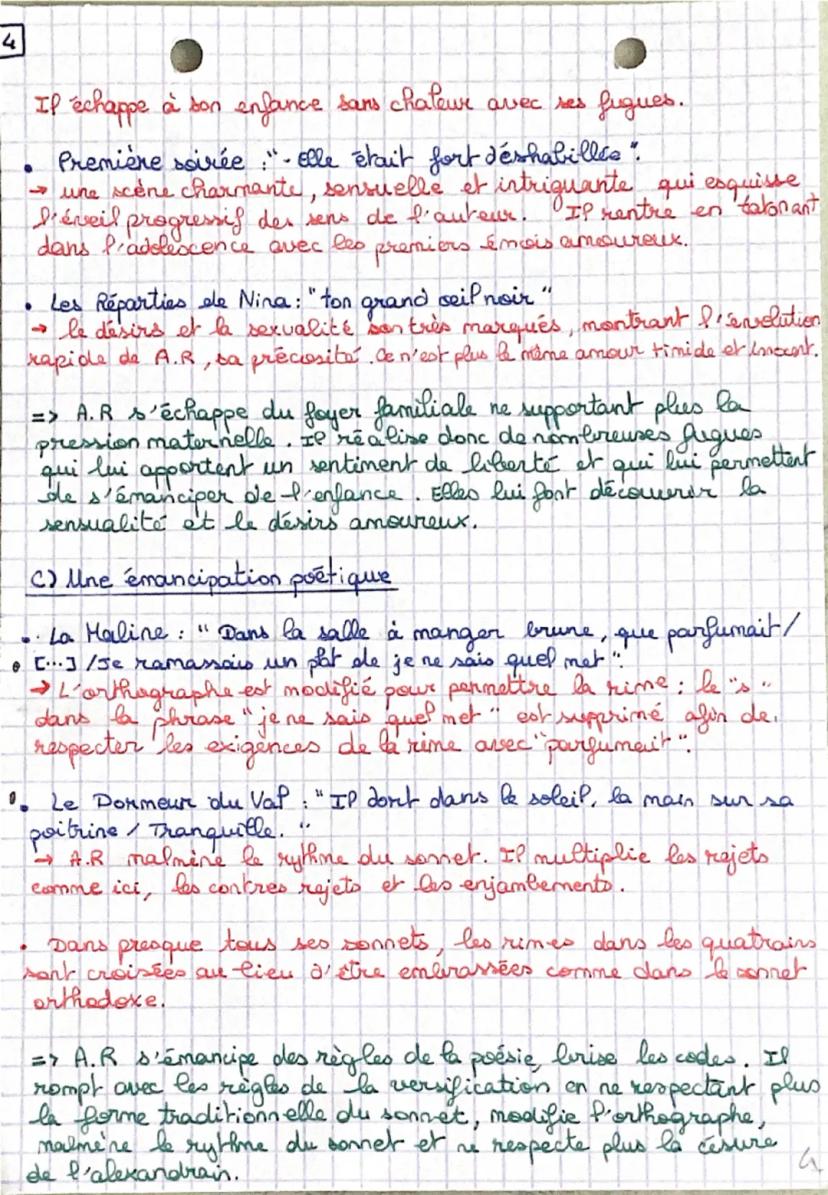 4
Il échappe à son enfance sans chaleur avec ses fugues.
• Première soirée : "- Elle était fort déshabillée".
→ une scène charmante, sensuelle et intriguante qui esquisse
l'éveil progressif des sens de l'auteur. Il rentre en tatonant
dans l'adolescence avec les premiers émois amoureux.
• Les Réparties de Nina : "ton grand oeil noir"
→ le désirs et la sexualité son très marqués, montrant l'évolution
rapide de A.R, sa précosité. Ce n'est plus le même amour timide et innocent.
=> A.R s'échappe du foyer familiale ne supportant plus la
pression maternelle. Il réalise donc de nombreuses fugues
qui lui apportent un sentiment de liberté et qui lui permettent
de s'émanciper de l'enfance. Elles lui font découvrir la
sensualité et le désirs amoureux.
C) Une émancipation poétique
• La Maline : "Dans la salle à manger brune, que parfumait /
• [...] / Je ramassais un plat de je ne sais quel met".
→ L'orthographe est modifié pour permettre la rime : le "s"
dans la phrase "je ne sais quel met" est supprimé afin de
respecter les exigences de la rime avec "parfumait".
• Le Dormeur du Val : "Il dort dans le soleil, la main sur sa
poitrine / Tranquille. "
→ A.R malmène le rythme du sonnet. Il multiplie les rejets
comme ici, les contres rejets et les enjambements.
• Dans presque tous ses sonnets, les rimes dans les quatrains
sont croisées au lieu d'être embrassées comme dans le sonnet
orthodoxe.
=> A.R s'émancipe des règles de la poésie, brise les codes. Il
rompt avec les règles de la versification en ne respectant plus
la forme traditionnelle du sonnet, modifie l'orthographe,
malmène le rythme du sonnet et ne respecte plus la césure
de l'alexandrain.
4